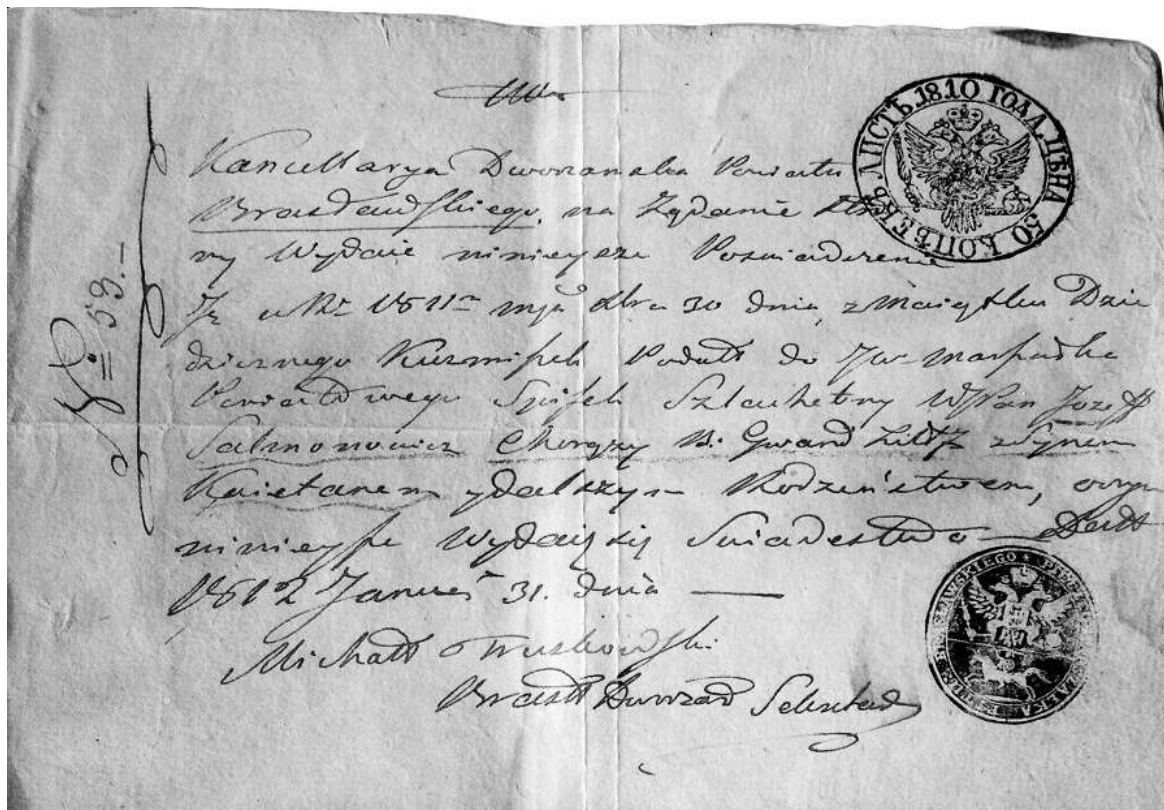 ЛИСТЪ 1810 ГОДА ЦѢНА 50 КОПѢЕКЪ
Kancellarya Dworzanska Powiatu
Brasławskiego, na Żądanie
ny Wydaie ninieysze Poswiadczenie
Iż 1811 30 dnia, z Maiątku Dzie
dzicznego Podał do JW
Powiatowego Spisek Szlachetny WJPan Jozeff
Salmonowicz Chorąży B. Gward Litt z Synem
Kaietanem y dalszym Rodzeństwem, o czym
ninieysze Wydaię się Swiadectwo
1812 31. dnia
Michał
Brasł Dworzań Sekretarz
№ 59.